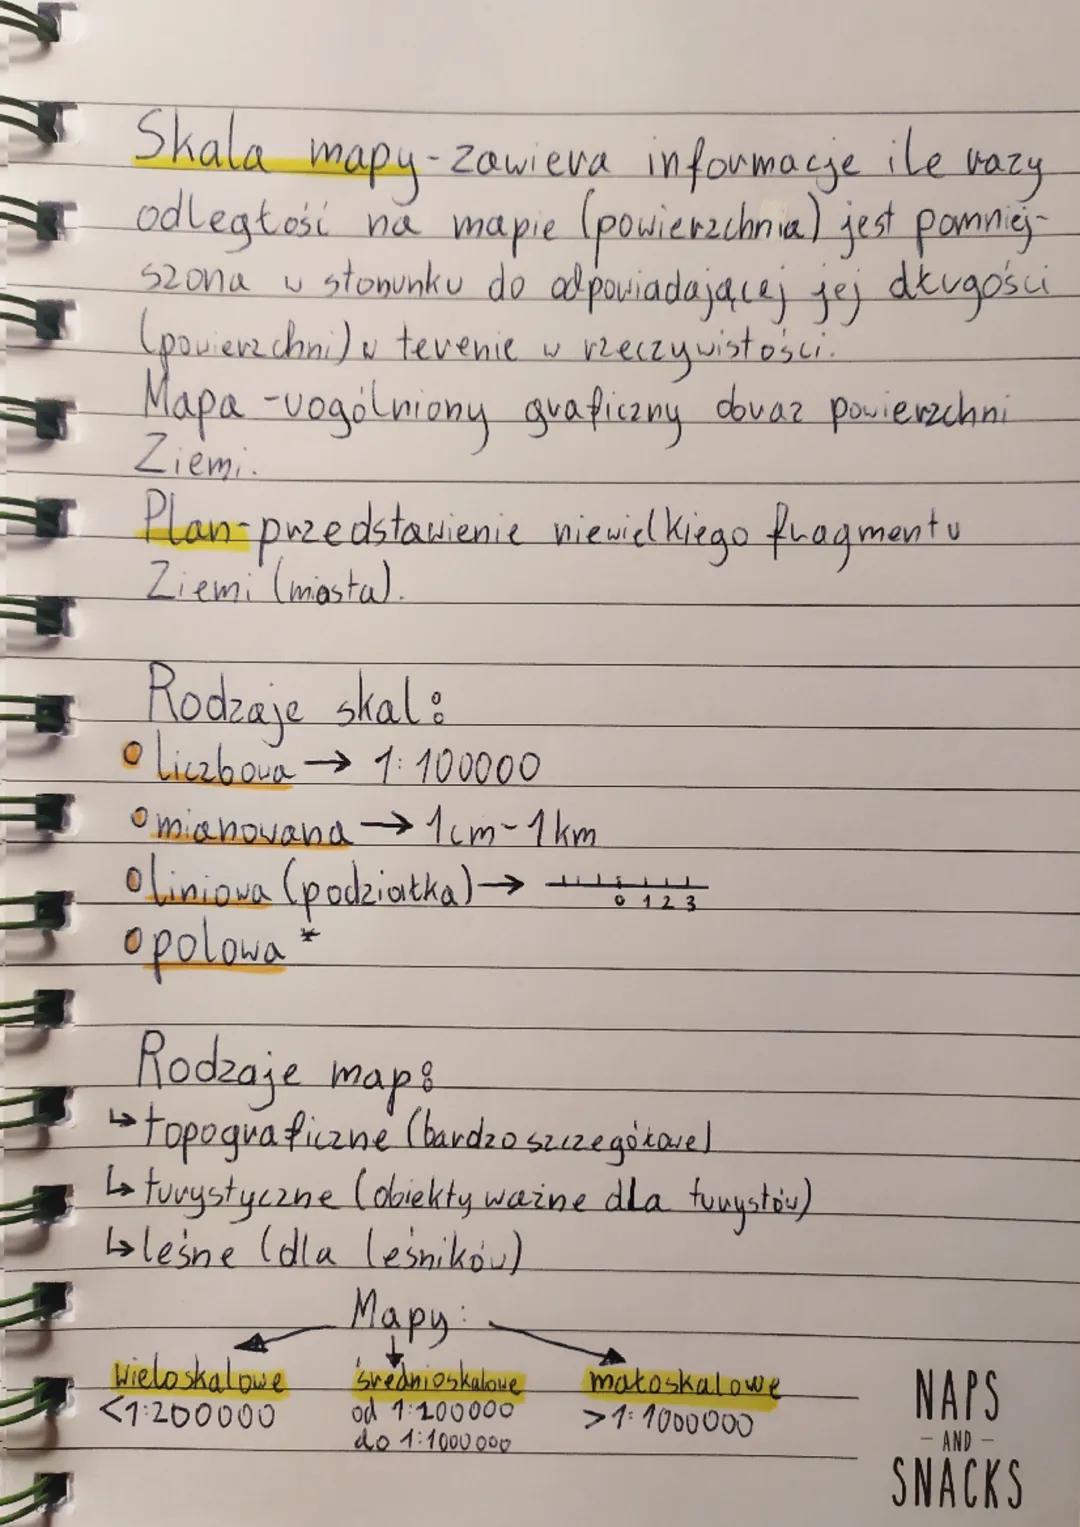 Skala mapy - zawiera informacje ile razy
odległość na mapie (powierzchnia) jest pomniej-
szona w stounku do odpowiadającej jej długości
(powierzchni) w terenie w rzeczywistości.
Mapa - uogólniony graficzny obraz powierzchni
Ziemi.
Plan - przedstawienie niewielkiego fragmentu
Ziemi (miasta).
Rodzaje skal:
liczbowa → 1:100000
mianowana → 1cm - 1km
liniowa (podziałka) →
0 1 2 3
polowa *
Rodzaje map:
↳ topograficzne (bardzo szczegółowe)
↳ turystyczne (obiekty ważne dla turystów)
↳ leśne (dla leśników)
Mapy:
wieloskalowe średnioskalowe małoskalowe
<1:200000 od 1:200000 >1:1000000
do 1:1000000
NAPS
- AND -
SNACKS